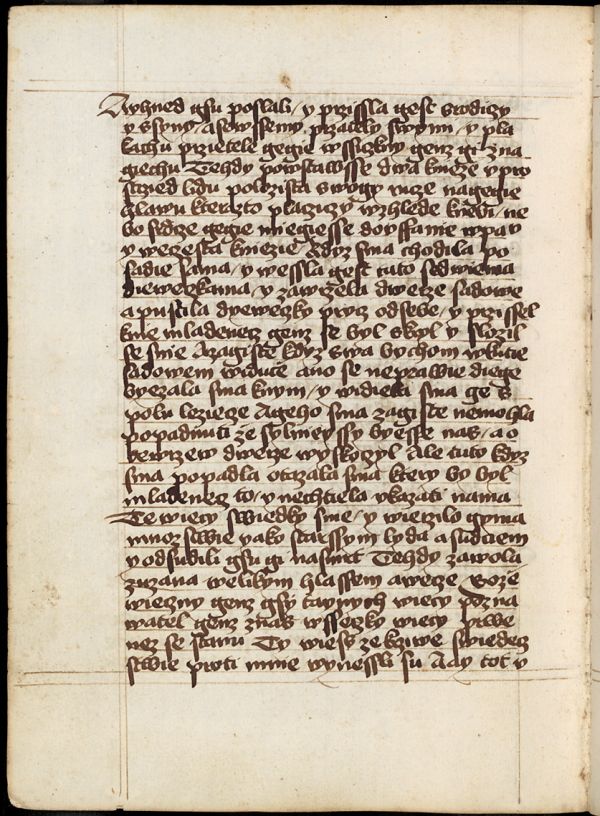 Awhned gsu poslali / y przissla gest s rodiczy
y s syny / a sewssemy przately swymi / y pla
kachu przietele gegie y wssiczkny genz gi zna
giechu Tehdy powstawsse dwa knieze vpro
strzed lidu polozista swogy ruze na gegie
hlawu kterazto placziczy wzhlede knebi / ne
bo srdcze gegie miegiesse doyffanie w pan
y wecesta kniezie Kdyz sma chodila po
sadie sama / y wessla gest tato se dwiema
dieweczkama / y zawrzela dwerze sadowe
a pustila dyeweczky precz od sebe / y przissel
knie mladenecz genz se byl skryl y slozil
se snie A zagiste kdyz swa bychom w kutie
sadowem widuce ano se neprawie diege
byezala sma knym / y widiela sma ge s
polu lezicze A geho sma zagiste nemohla
popadnuti ze sylneyssy byesse nas / a o
tewrzew dwerze wyskoczyl Ale tuto kdyz
sma popadla otazala sma ktery by byl
mladenecz to / y nechtiela vkazati nama
Te wiecy swiedky sme / y wierzilo gyma
mnozstwie yako starssym lyda a sudciem
y odsudili gsu gi na smrt Tehdy zawola
zuzana welikym hlassem a wece Boze
wieczny genz gsy taynych wiecy pozna
watel genz znass wsseczky wiecy prwe
nez se stanu Ty wiess ze krziwe swiedecz
stwie proti mnie wynessli su A ay tot v